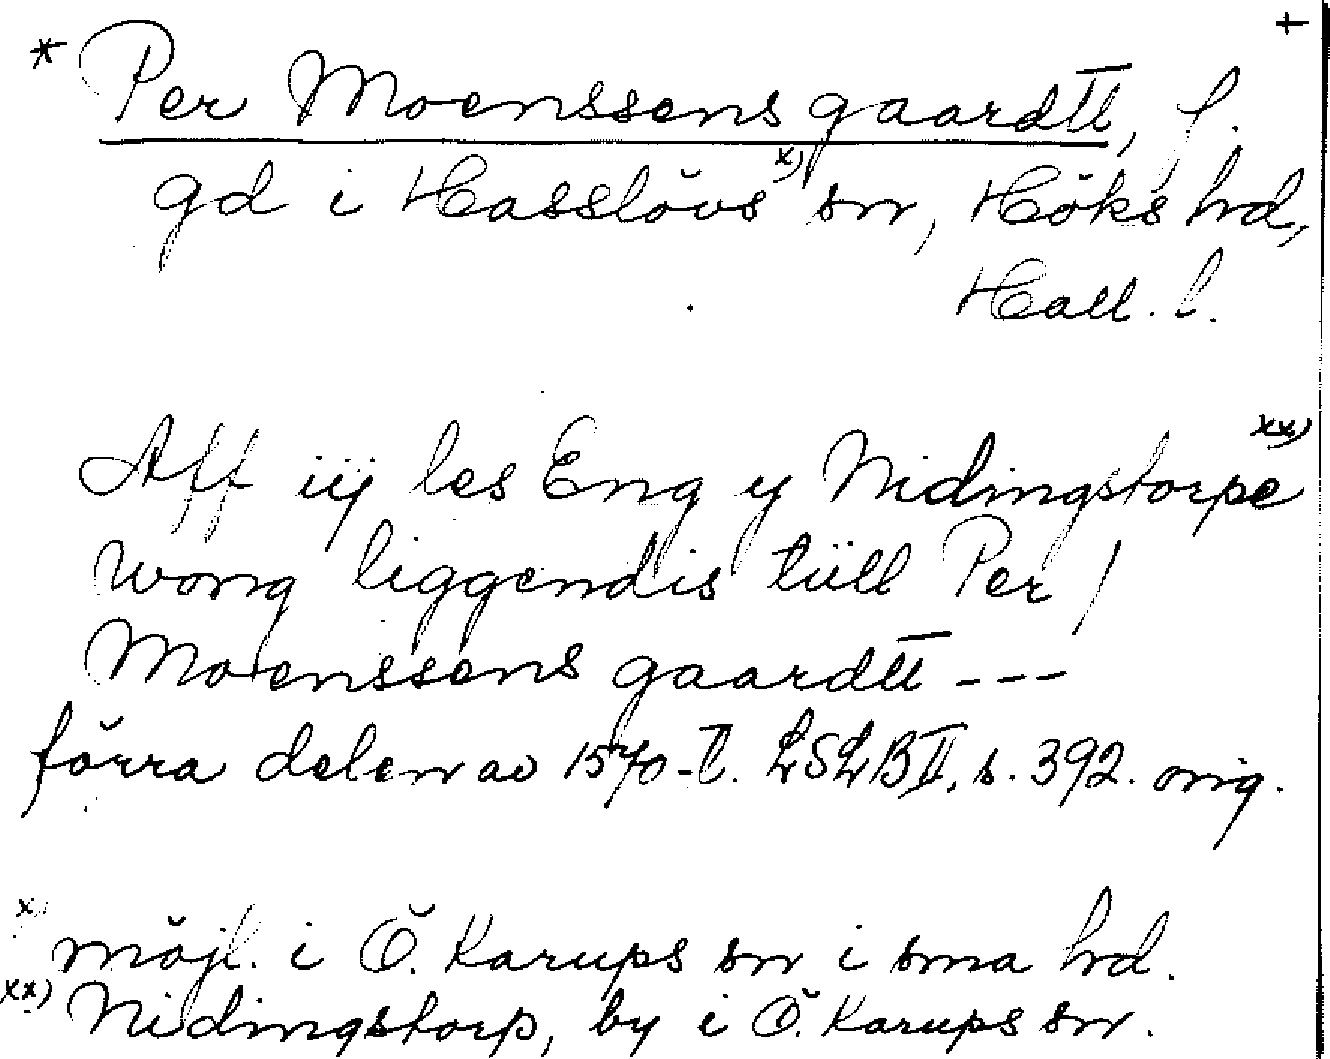 * Per Moenssens gaardtt, f. +
gd i Hasslövs x) sn, Höks hd,
Hall. l.
Aff iij les Eng y Nidingstorpe xx)
wong liggendis tüll Per /
Moenssens gaardtt ---
förra delen av 1570-t. LSLB II, s. 392. orig.
x) möjl. i Ö. Karups sn i sma hd.
xx) Nidingstorp, by i Ö. Karups sn.